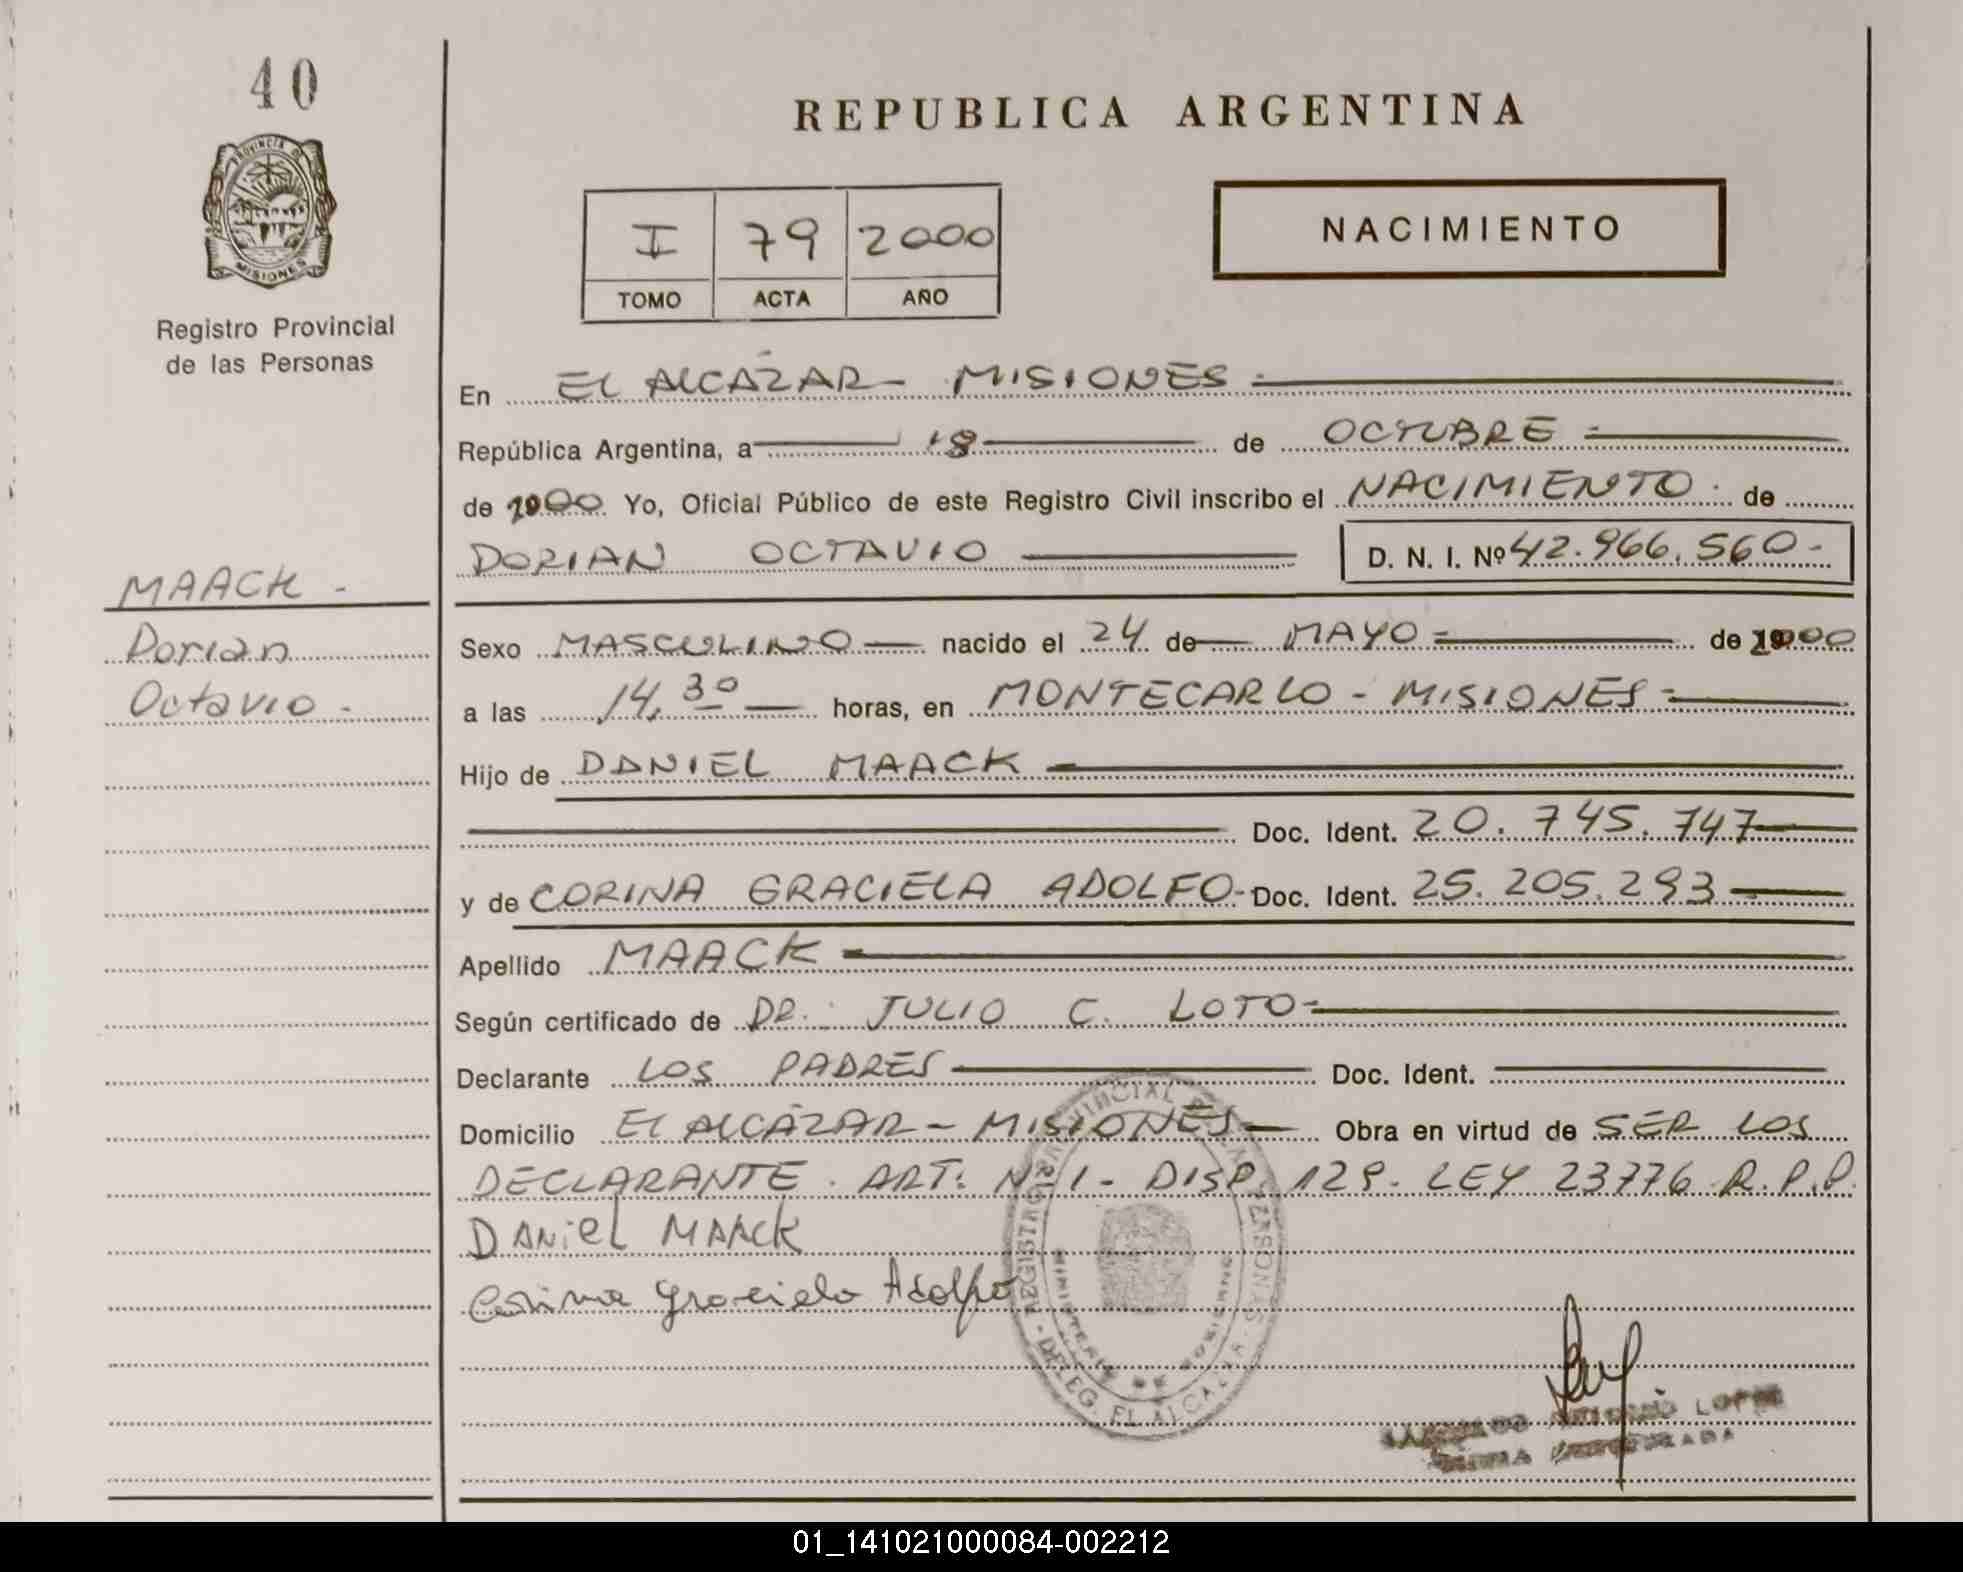 40
PROVINCIA DE
MISIONES
Registro Provincial
de las Personas
MAACK -
Dorian
Octavio -
REPUBLICA ARGENTINA
I 79 2000
TOMO ACTA AÑO
NACIMIENTO
En EL ALCAZAR - MISIONES -
República Argentina, a 18 de OCTUBRE -
de 2000 Yo, Oficial Público de este Registro Civil inscribo el NACIMIENTO - de
DORIAN OCTAVIO D. N. I. Nº 42.966.560-
Sexo MASCULINO nacido el 24 de MAYO - de 2000
a las 14,30 horas, en MONTECARLO - MISIONES -
Hijo de DANIEL MAACK
Doc. Ident. 20.745.747
y de CORINA GRACIELA ADOLFO- Doc. Ident. 25.205.293
Apellido MAACK
Según certificado de DR. JULIO C. LOTO-
Declarante LOS PADRES Doc. Ident.
Domicilio EL ALCÁZAR - MISIONES - Obra en virtud de SER LOS
DECLARANTE. ART: Nº 1 - DISP. 129 - LEY 23776 R.P.P.
DANiEL MAACK
Corina Graciela Adolfo
REGISTRO PROVINCIAL DE LAS PERSONAS - DELEG. EL ALCAZAR -
MINISTERIO DE GOBIERNO
LOPEZ
01_141021000084-002212